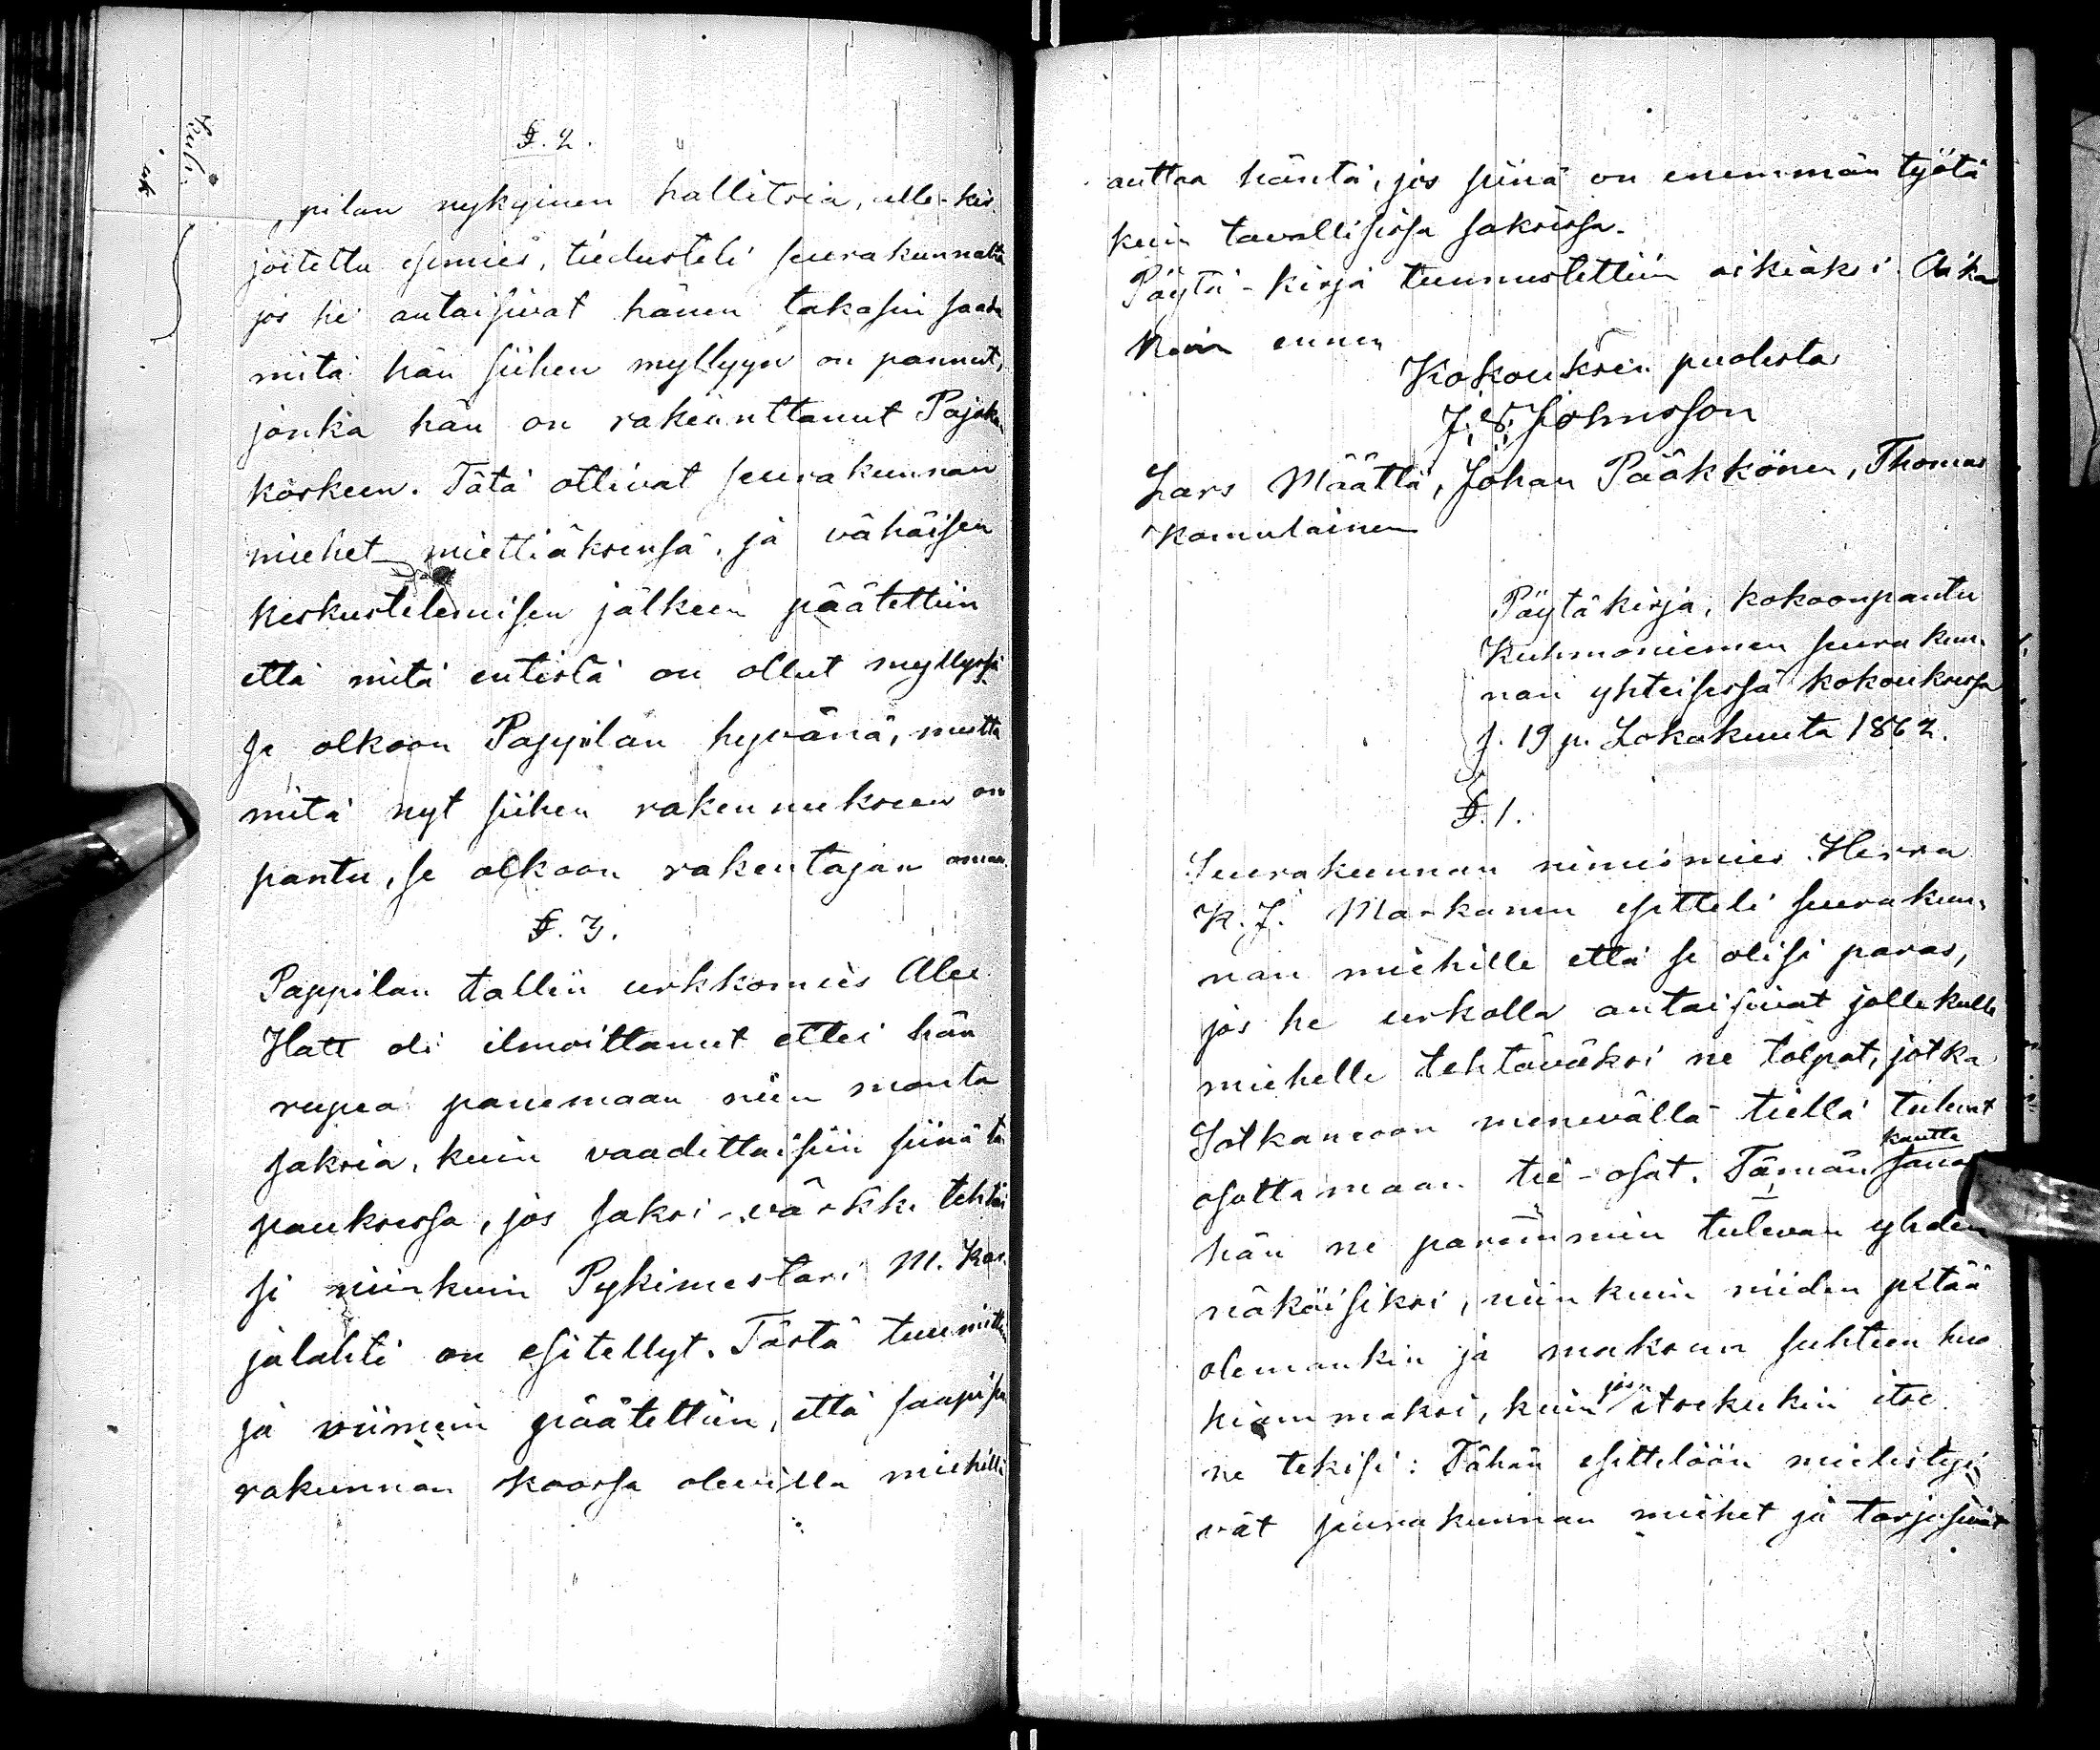 §. 2.
pilan nykyinen hallitsia, alle-kir-
joitettu esimies, tiedusteli seurakunnalta
jos he antaisivat hänen takasin saada
mitä hän siihen myllyyn on pannut,
jonka hän on rakennttanut Pajakka
koskeen. Tätä ottivat seurakunnan
miehet miettiäksensä, ja vähäisen
keskustelemisen jälkeen päätettiin
että mitä entistä on ollut myllyssä
se olkoon Pappilan hyvänä, mutta
mitä nyt siihen rakennukseen on
pantu, se olkoon rakentajan oman.
§. 3.
Pappilan tallin urkkomies
Hatt oli ilmoittanut ettei hän
rupea panemaan niin monta
saksia, kuin vaadittaisiin siinä ta
pauksessa, jos saksi-värkki tehtäi
si niinkuin Pykimestari M. Kar-
jalahti on esitellyt. Tästä tuumittiin
ja viimein päätettiin, että
rakunnan koossa olevilla miehillä
auttaa häntä, jos siinä on enemmän työtä
kuin tavallisissa saksissa.
Pöytä-kirja tunnustettiin oikiaksi. Aika
kuin ennen
Kokouksen puolesta
J. V. Johnsson
Lars Määttä, Johan Pääkkönen, Thomas
Komulainen
Pöytäkirja, kokoonpantu
Kuhmoniemen seurakun-
nan yhteisessä kokouksessa
s. 19 p. Lokakuuta 1862.
§. 1.
Seurakunnan nimismies Herra
K. J. Markanen esitteli seurakun-
nan miehille että se olisi paras,
jos he urkalla antaisivat jollekulle
miehelle tehtäväksi ne tolpat, jotka
Sotkamoon menevällä tiellä tulevat
osottamaan tie-osat. Tämän kautta sanoi
hän ne paremmin tulevan yhden
näköisiksi, niinkuin niiden pitää
olemankin ja maksun suhteen huo
kiammaksi, kuin jos itsekukin itse
ne tekisi: Tähän esittelöön mielistyi-
vät seurakunnan miehet ja tarjosivat